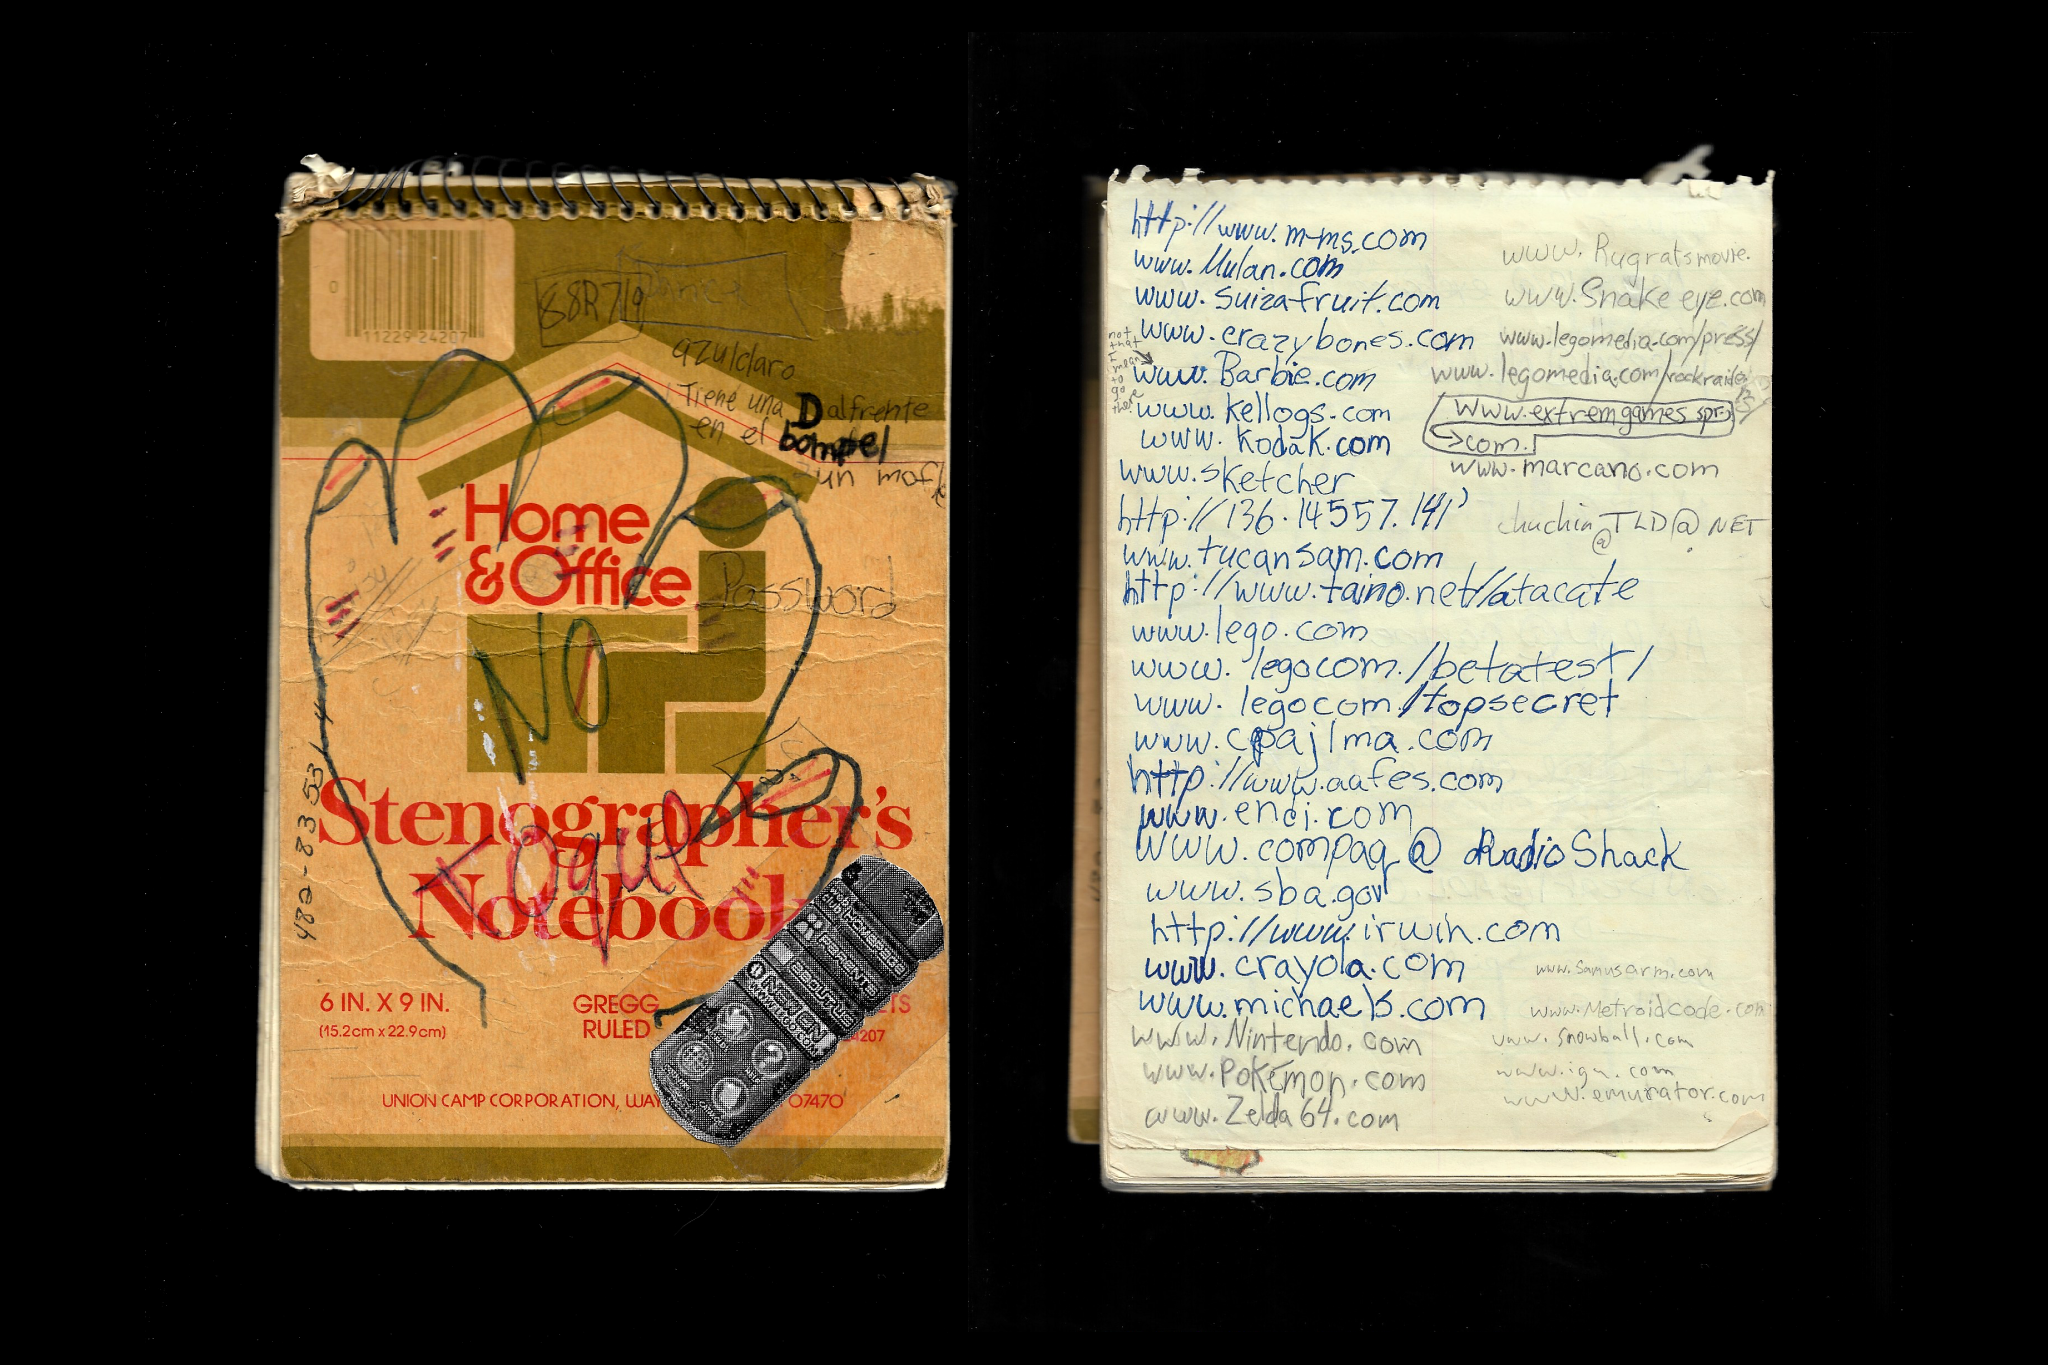 0
11229-24207
88R719
azulclaro
Tiene una Dalfrente
en el bompel
un mofle
Home
& Office
Password
NO
482-8353
Stenographer's
Toque
Notebook
HOMEPAGE
PARENTS
6 IN. X 9 IN.
(15.2cm x 22.9cm)
GREGG
RULED
ETS
4207
UNION CAMP CORPORATION, WAY
07470
http://www.m-ms.com
www.Mulan.com
www.suizafruit.com
www.crazybones.com
not
that
I
mean
to
go
there
www.Barbie.com
www.kellogs.com
www.Kodak.com
www.sketcher
http://136.14557.141'
www.tucansam.com
http://www.taino.net/atacate
www.lego.com
www.legocom./betatest/
www.legocom/topsecret
www.cpajlma.com
http://www.aafes.com
www.enci.com
www.compaq@RadioShack
www.sba.gov
http://www.irwin.com
www.crayola.com
www.michaels.com
www.Nintendo.com
www.Pokémon.com
www.Zelda64.com
www.Rugratsmovie.
www.Snakeeye.com
www.legomedia.com/press/
www.legomedia.com/rockraiders
www.extremgames.spr.
→com.
www.marcano.com
chuchin@TLD@NET
www.Samusarm.com
www.Metroidcode.com
www.snowball.com
www.ign.com
www.emurator.com